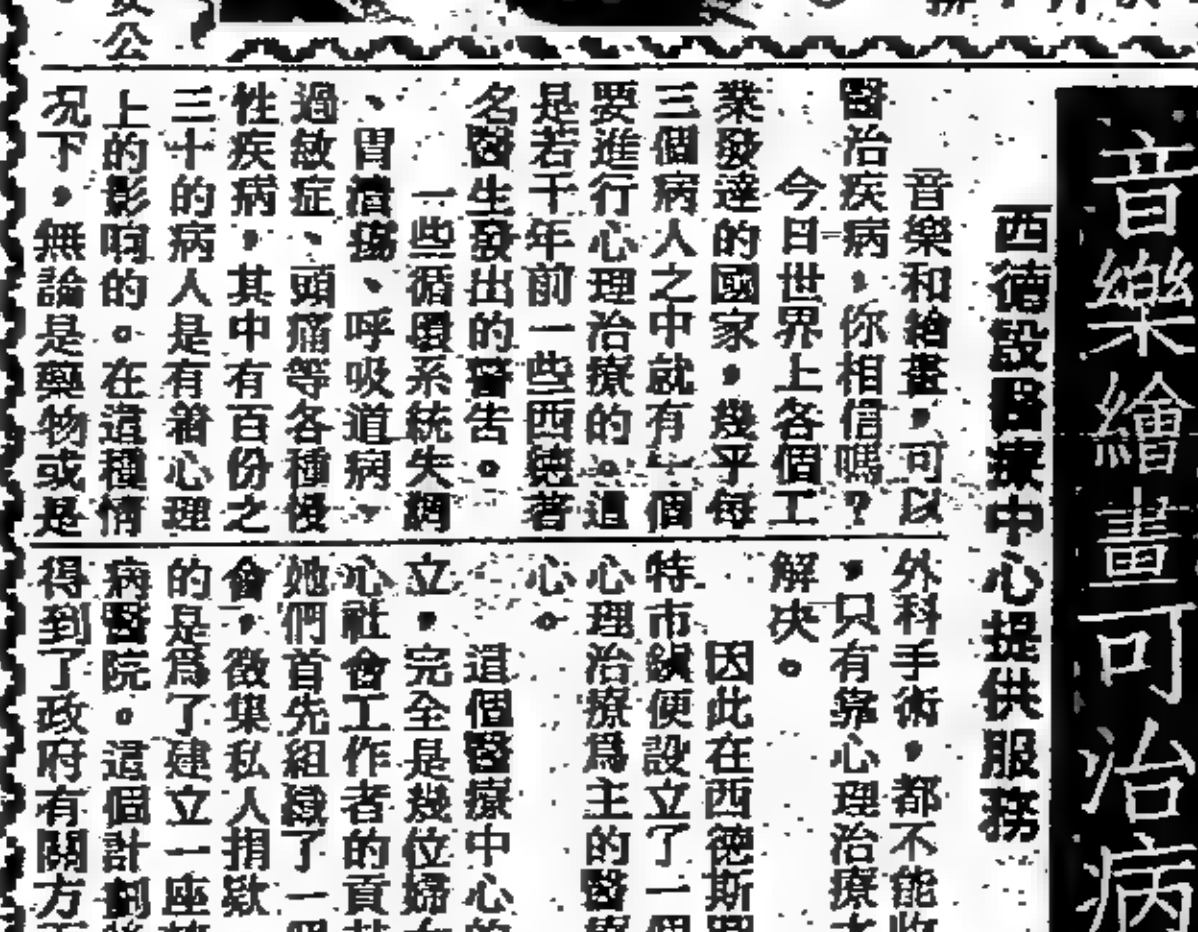 音樂繪畫可治病
西德設醫療中心提供服務
音樂和繪畫，可以
醫治疾病，你相信嗎？
今日世界上各個工
業發達的國家，幾乎每
三個病人之中就有一個
要進行心理治療的。這
是若干年前一些西德著
名醫生發出的警告。
一些循環系統失調
、胃潰瘍、呼吸道病、
過敏症、頭痛等各種慢
性疾病，其中有百份之
三十的病人是有着心理
上的影响的。在這種情
况下，無論是藥物或是
外科手術，都不能收
，只有靠心理治療才
解决。
因此在西德斯
特市鎮便設立了一個
心理治療爲主的醫療
心。
這個醫療中心的
立，完全是幾位婦女
心社會工作者的貢
她們首先組織了一個
會，徵集私人捐欵
的是爲了建立一座
病醫院。這個計劃
得到了政府有關方
女公